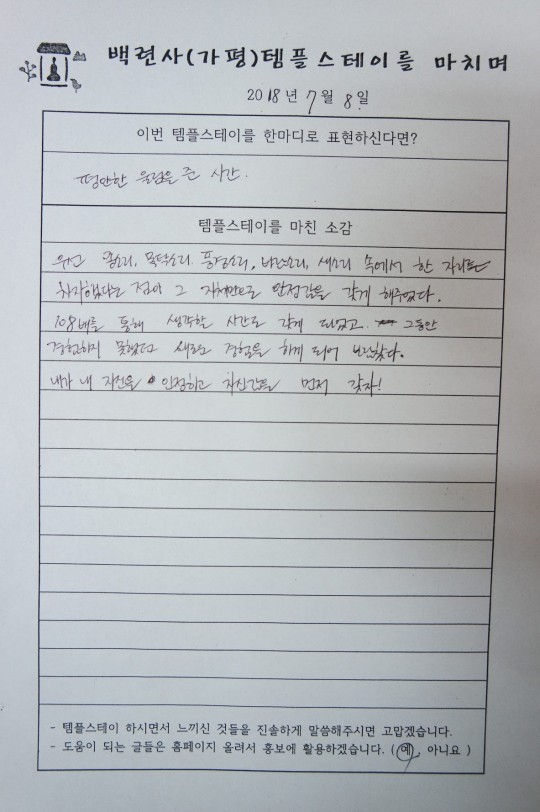 백련사(가평)템플스테이를 마치며
2018년 7월 8일
이번 템플스테이를 한마디로 표현하신다면?
평안한 울림을 준 시간.
템플스테이를 마친 소감
종소리, 목탁소리, 풍경소리, 바람소리, 새소리 속에서 한 자리를
차지했다는 점이 그 자체만으로 안정감을 갖게 해주었다.
108배를 통해 생각할 시간도 갖게 되었고 그동안
경험하지 못했던 새로운 경험을 하게 되어 보람찼다.
내가 내 자신을 인정하고 자신감을 먼저 갖자!
- 템플스테이 하시면서 느끼신 것들을 진솔하게 말씀해주시면 고맙겠습니다.
- 도움이 되는 글들은 홈페이지 올려서 홍보에 활용하겠습니다. (예, 아니요)